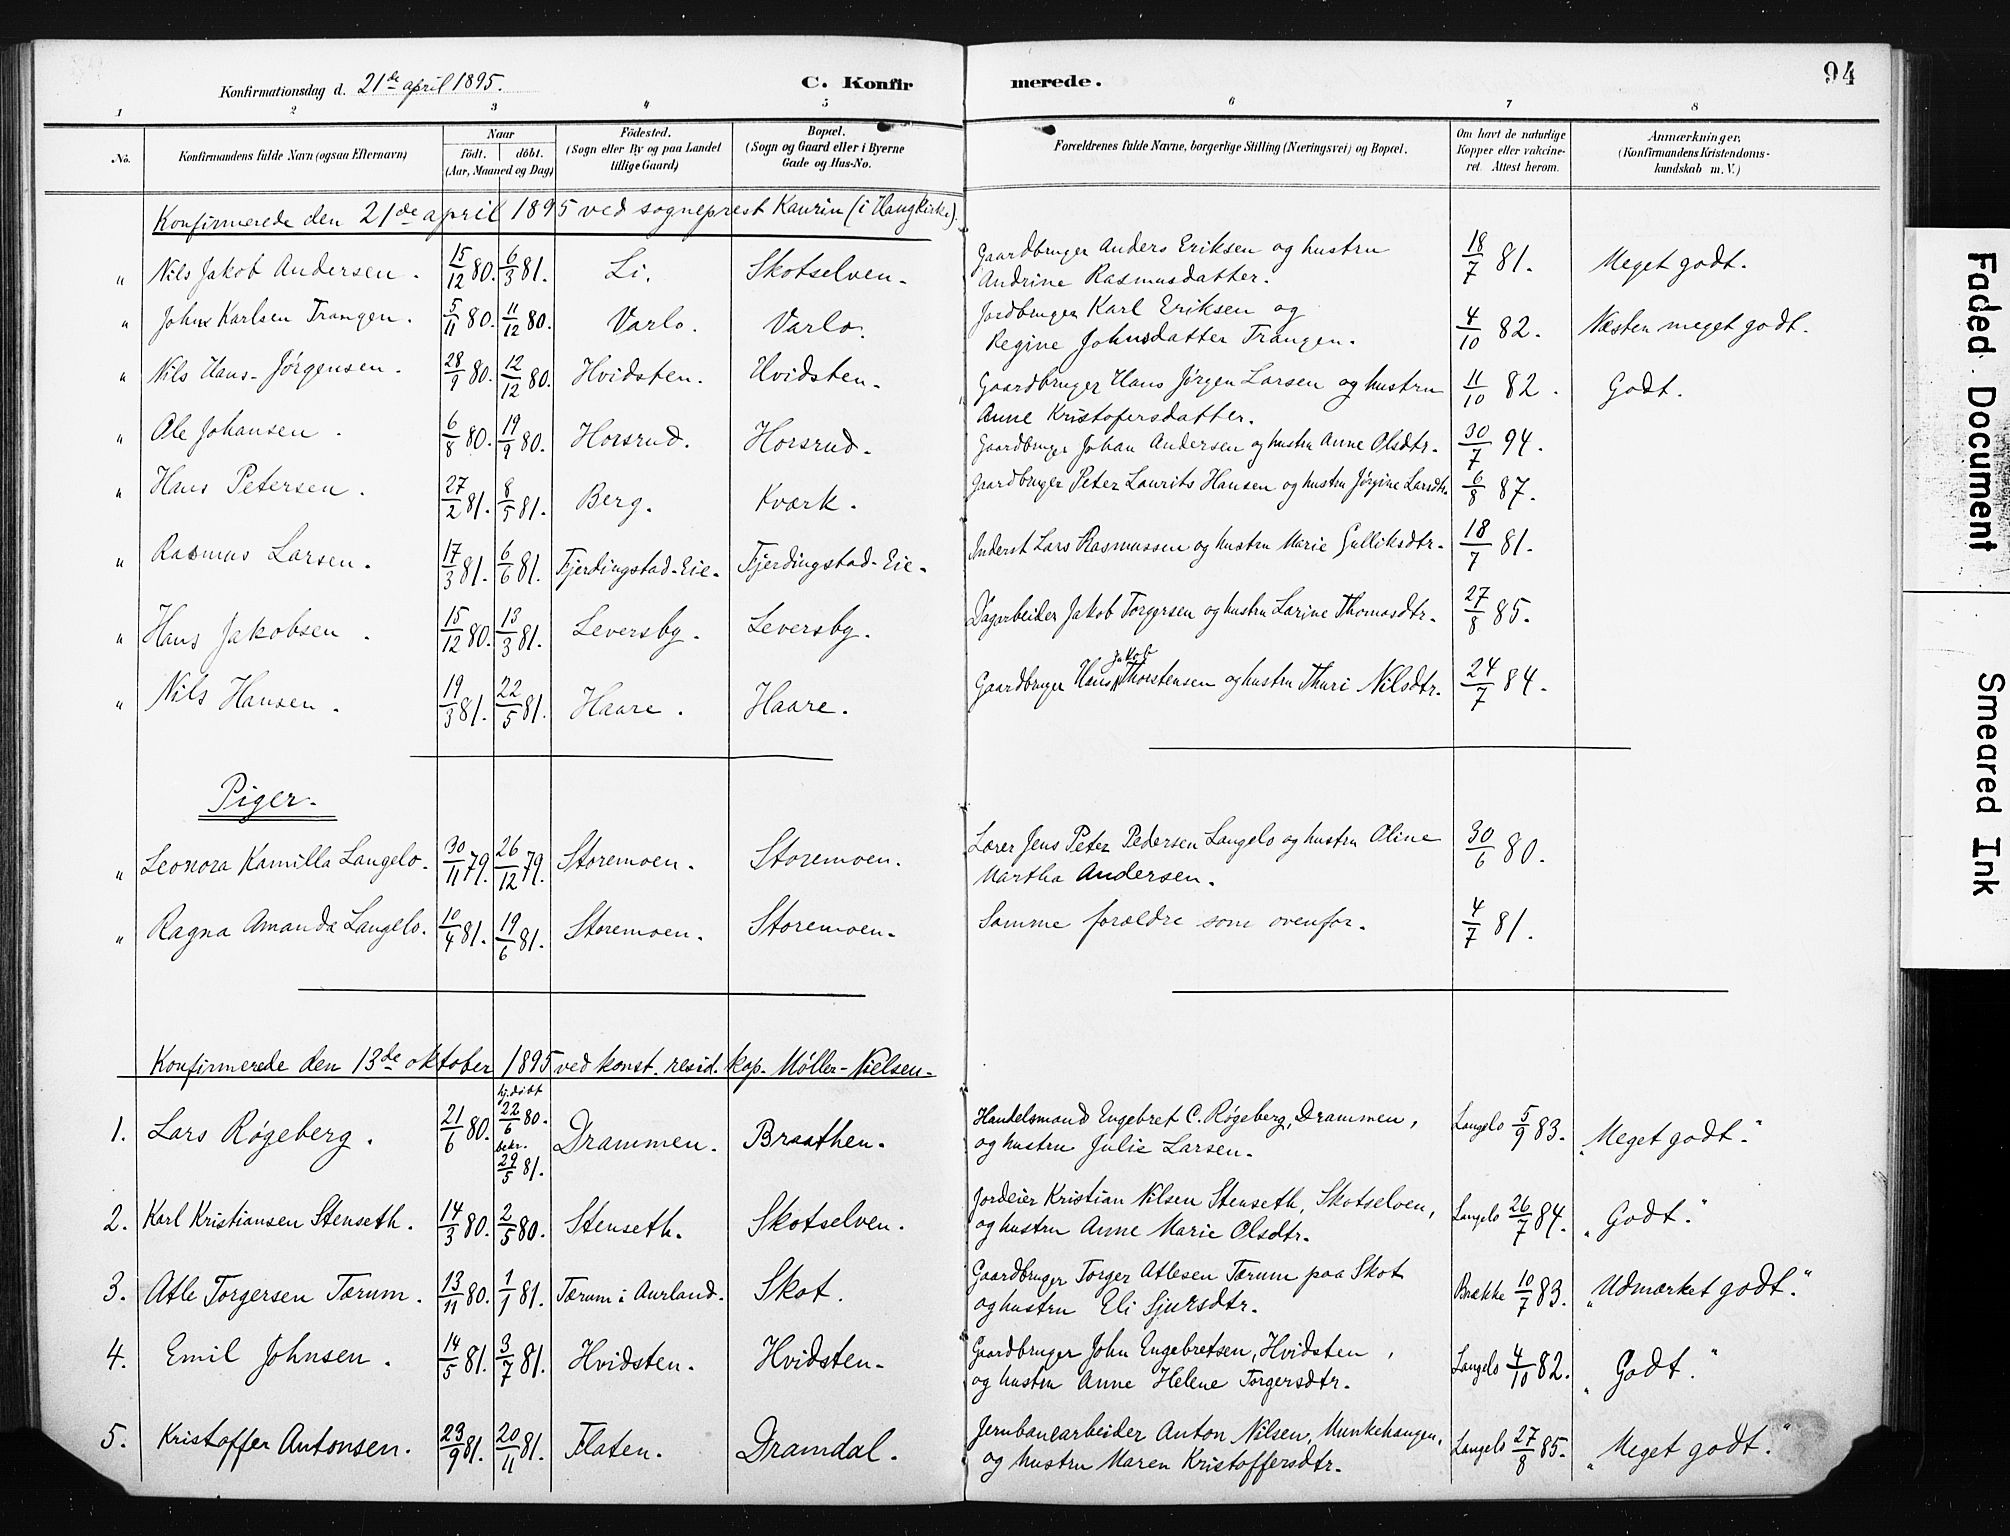 Konfirmationsdag d. 21de april 1895.
C. Konfirmerede.
94
1 2 3 4 5 6 7 8
No.
Konfirmandens fulde Navn (ogsaa Efternavn)
Naar
födt. döbt.
(Aar, Maaned og Dag)
Födested.
(Sogn eller By og paa Landet
tillige Gaard)
Bopæl.
(Sogn og Gaard eller i Byerne
Gade og Hus-No.
Forældrenes fulde Navne, borgerlige Stilling (Næringsvei) og Bopæl.
Om havt de naturlige
Kopper eller vakcine-
ret. Attest herom.
Anmærkninger.
(Konfirmandens Kristendoms-
kundskab m. V.)
Konfirmerede den 21de april 1895 ved sogneprest Kaurin (i Haug kirke).
" Nils Jakob Andersen. 15/12 80. 6/3 81. Li. Skotselven. Gaardbruger Anders Eriksen og hustru 18/7 81. Meget godt.
Andrine Rasmusdatter.
" John Karlsen Trangen. 5/11 80. 11/12 80. Varlo. Varlo. Jordbruger Karl Eriksen og 4/10 82. Næsten meget godt.
Regine Johnsdatter Trangen.
" Nils Hans-Jørgensen. 28/9 80. 12/12 80. Hvidsten. Hvidsten. Gaardbruger Hans Jørgen Larsen og hustru 11/10 82. Godt.
Anne Kristofersdatter.
" Ole Johansen. 6/8 80. 19/9 80. Horsrud. Horsrud. Gaardbruger Johan Andersen og hustru Anne Olsdtr. 30/7 94.
" Hans Petersen. 27/2 81. 8/5 81. Berg. Kværk. Gaardbruger Peter Laurits Hansen og hustru Jørgine Larsdtr. 6/8 87.
" Rasmus Larsen. 17/3 81. 6/6 81. Fjerdingstad-Eie. Fjerdingstad-Eie. Inderst Lars Rasmussen og hustru Marie Gulliksdtr. 18/7 81.
" Hans Jakobsen. 15/12 80. 13/3 81. Leversby. Leversby. Dagarbeider Jakob Torgersen og hustru Larine Thomasdtr. 27/8 85.
" Nils Hansen. 19/3 81. 22/5 81. Haare. Haare. Gaardbruger Hans Jakob Thorstensen og hustru Thuri Nilsdtr. 24/7 84.
Piger.
" Leonora Kamilla Langelo. 30/11 79. 26/12 79. Storemoen. Storemoen. Lærer Jens Peter Pedersen Langelo og hustru Oline 30/6 80.
Martha Andersen.
" Ragna Amanda Langelo. 10/4 81. 19/6 81. Storemoen. Storemoen. Samme forældre som ovenfor. 4/7 81.
Konfirmerede den 13de oktober 1895 ved konst. resid. kap. Møller-Nielsen.
1. Lars Røgeberg. 21/6 80. hj.døbt 22/6 80. bekr. 29/5 81. Drammen. Braathen. Handelsmand Engebret C. Røgeberg, Drammen, Langelo 5/9 83. "Meget godt."
og hustru Julie Larsen.
2. Karl Kristiansen Stenseth. 14/3 80. 2/5 80. Stenseth. Skotselven. Jordeier Kristian Nilsen Stenseth, Skotselven, Langelo 26/7 84. "Godt."
og hustru Anne Marie Olsdtr.
3. Atle Torgersen Tærum. 13/11 80. 1/1 81. Tærum i Aurland. Skot. Gaardbruger Torger Atlesen Tærum paa Skot Brække 10/7 83. "Udmærket godt."
og hustru Eli Sjursdtr.
4. Emil Johnsen. 14/5 81. 3/7 81. Hvidsten. Hvidsten. Gaardbruger John Engebretsen, Hvidsten, Langelo 4/10 82. "Godt."
og hustru Anne Helene Torgersdtr.
5. Kristoffer Antonsen. 23/9 81. 20/11 81. Flaten. Dramdal. Jernbanearbeider Anton Nilsen, Munkehaugen, Langelo 27/8 85. "Meget godt."
og hustru Maren Kristoffersdtr.
Faded Document
Smeared Ink